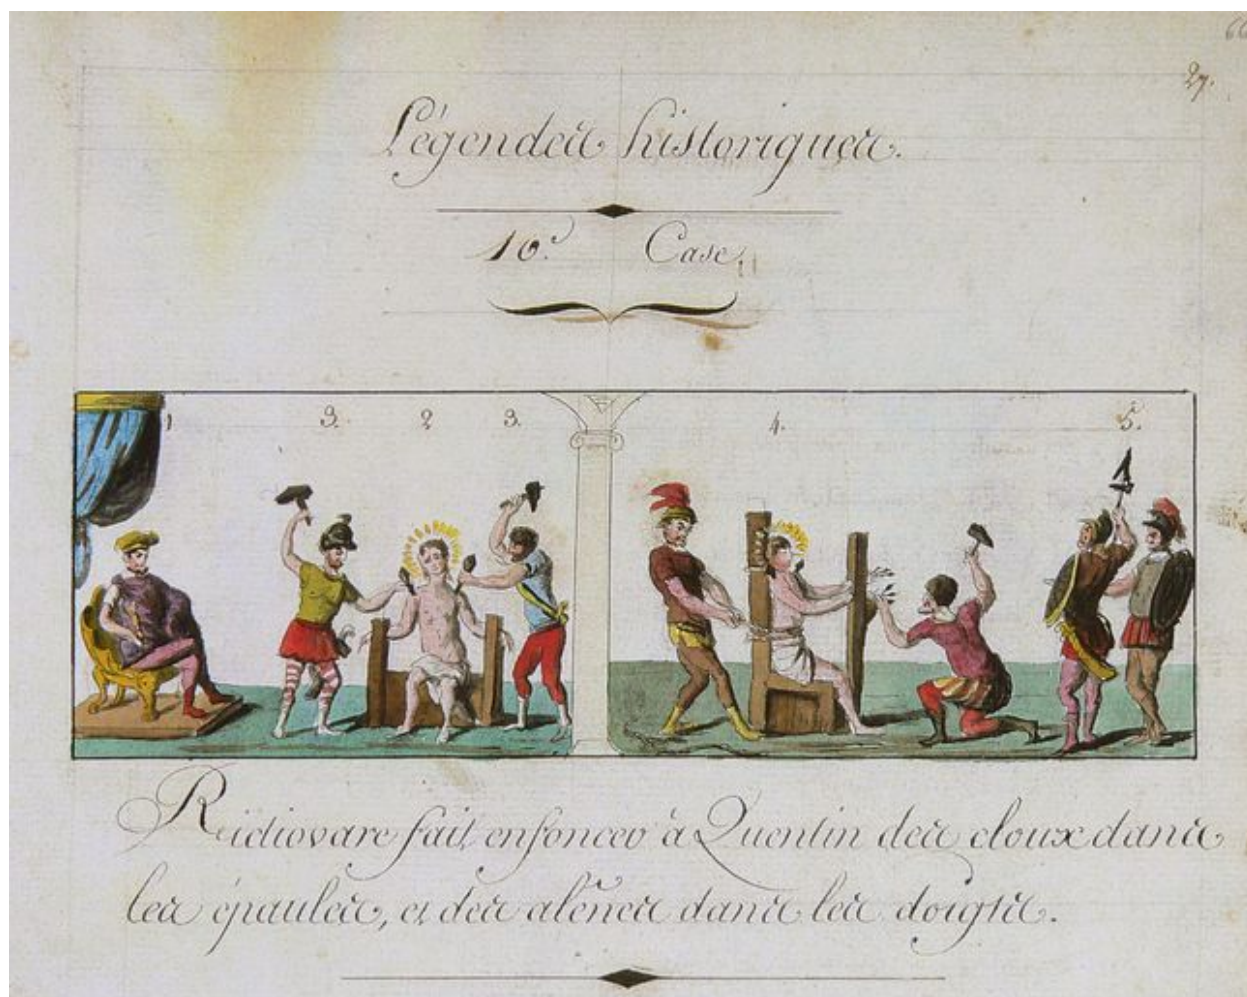 66
27.
Légendes historiques.
10.e Case.
1 3. 2 3. 4. 5.
Rictiovare fait enfoncer à Quentin des cloux dans
les épaules, et des alênes dans les doigts.